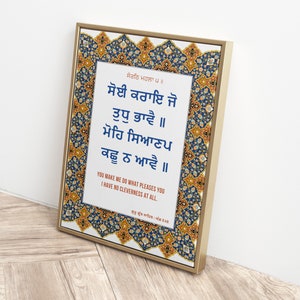 ਸੋਰਠਿ ਮਹਲਾ ੫ ॥
ਸੋਈ ਕਰਾਇ ਜੋ
ਤੁਧੁ ਭਾਵੈ ॥
ਮੋਹਿ ਸਿਆਣਪ
ਕਛੂ ਨ ਆਵੈ ॥
YOU MAKE ME DO WHAT PLEASES YOU
I HAVE NO CLEVERNESS AT ALL.